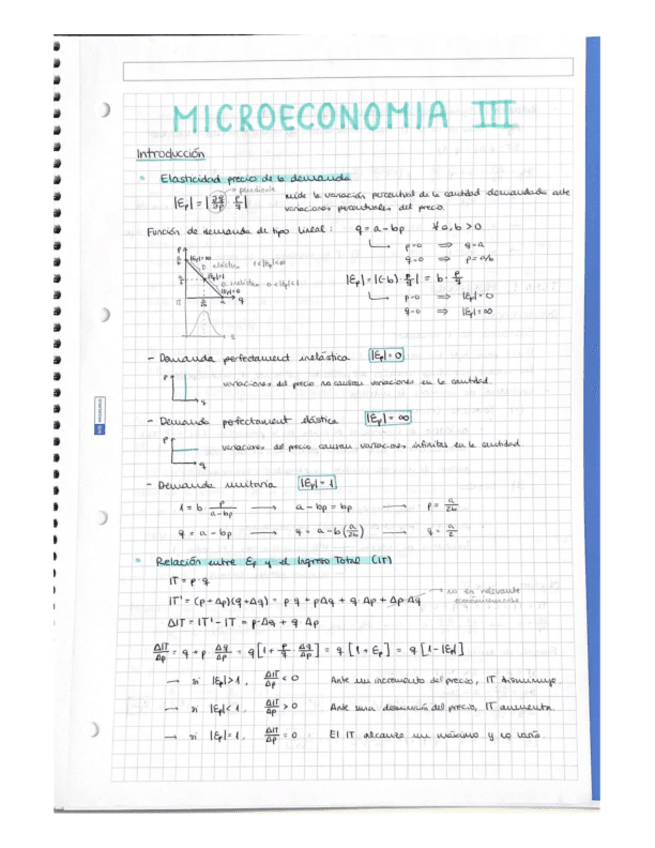 MICROECONOMIA III
Introducción
Elasticidad precio de la demanda
pendiente
|Ep| = |∂q/∂p · p/q| mide la variación porcentual de la cantidad demandada ante
variaciones porcentuales del precio.
Función de demanda de tipo lineal: q = a - bp ∀ a,b > 0
p=0 ⟹ q=a
q=0 ⟹ p=a/b
|Ep|=∞
D. elástica 1<|Ep|<∞
|Ep|=1
D. inelástica 0<|Ep|<1
|Ep|=0
|Ep| = |(-b) · p/q| = b · p/q
p=0 ⟹ |Ep|=0
q=0 ⟹ |Ep|=∞
- Demanda perfectament inelástica |Ep|=0
P
q
variaciones del precio no causan variaciones en la cantidad.
- Demanda perfectament elástica |Ep|=∞
P
q
variaciones del precio causan variaciones infinitas en la cantidad
- Demanda unitaria |Ep|=1
1 = b · p/(a-bp) → a - bp = bp → p = a/2b
q = a - bp → q = a - b(a/2b) → q = a/2
Relación entre Ep y el Ingreso Total (IT)
IT = p · q
IT' = (p + Δp)(q + Δq) = p·q + pΔq + q·Δp + Δp·Δq → no es relevante
económicamente
ΔIT = IT' - IT = p·Δq + q·Δp
ΔIT/Δp = q + p · Δq/Δp = q [1 + p/q · Δq/Δp] = q [1 + Ep] = q [1 - |Ep|]
→ si |Ep|>1, ΔIT/Δp < 0 Ante un incremento del precio, IT disminuye.
→ si |Ep|<1, ΔIT/Δp > 0 Ante una del precio, IT aumenta
→ si |Ep|=1, ΔIT/Δp = 0 El IT alcanza un máximo y no varía